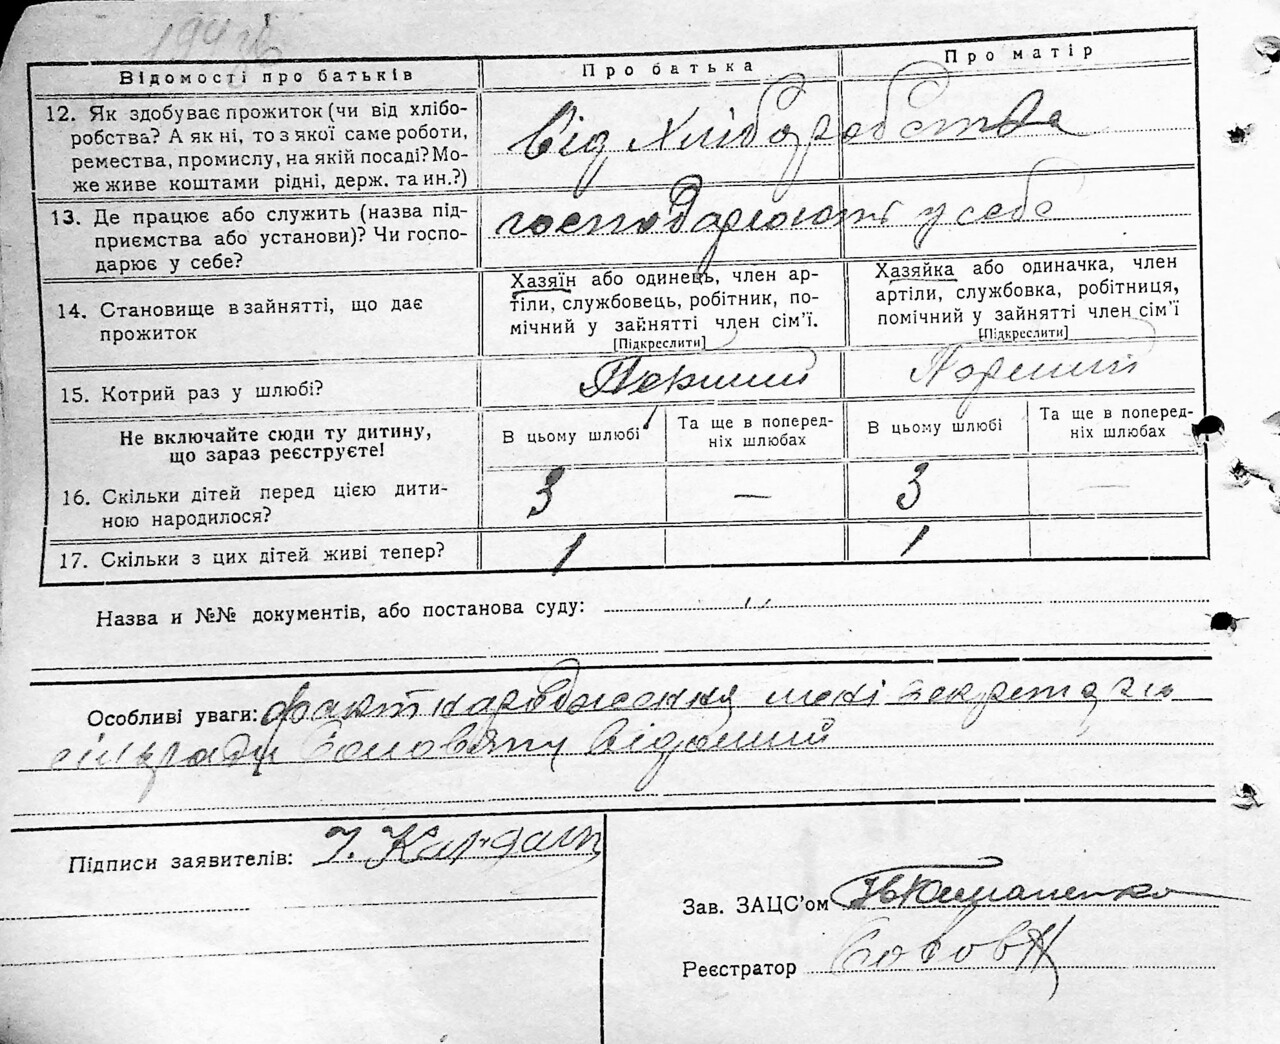 Відомості про батьків
Про батька
Про матір
12. Як здобуває прожиток (чи від хлібо-
робства? А як ні, то з якої саме роботи,
ремества, промислу, на якій посаді? Мо-
же живе коштами рідні, держ. та ин.?)
Від хліборобства
13. Де працює або служить (назва під-
приємства або установи)? Чи госпо-
дарює у себе?
господарюють у себе
14. Становище в зайнятті, що дає
прожиток
Хазяїн або одинець, член ар-
тіли, службовець, робітник, по-
мічний у зайнятті член сім’ї.
[Підкреслити]
Хазяйка або одиначка, член
артіли, службовка, робітниця,
помічний у зайнятті член сім’ї
[Підкреслити]
15. Котрий раз у шлюбі?
Перший
Перший
Не включайте сюди ту дитину,
що зараз реєструєте!
В цьому шлюбі
Та ще в поперед-
ніх шлюбах
В цьому шлюбі
Та ще в поперед-
ніх шлюбах
16. Скільки дітей перед цією дити-
ною народилося?
3
—
3
—
17. Скільки з цих дітей живі тепер?
1
1
Назва и №№ документів, або постанова суду:
Особливі уваги: факт народження мені секретарю
сільради відомий
Підписи заявителів:
Зав. ЗАЦС’ом
Реєстратор